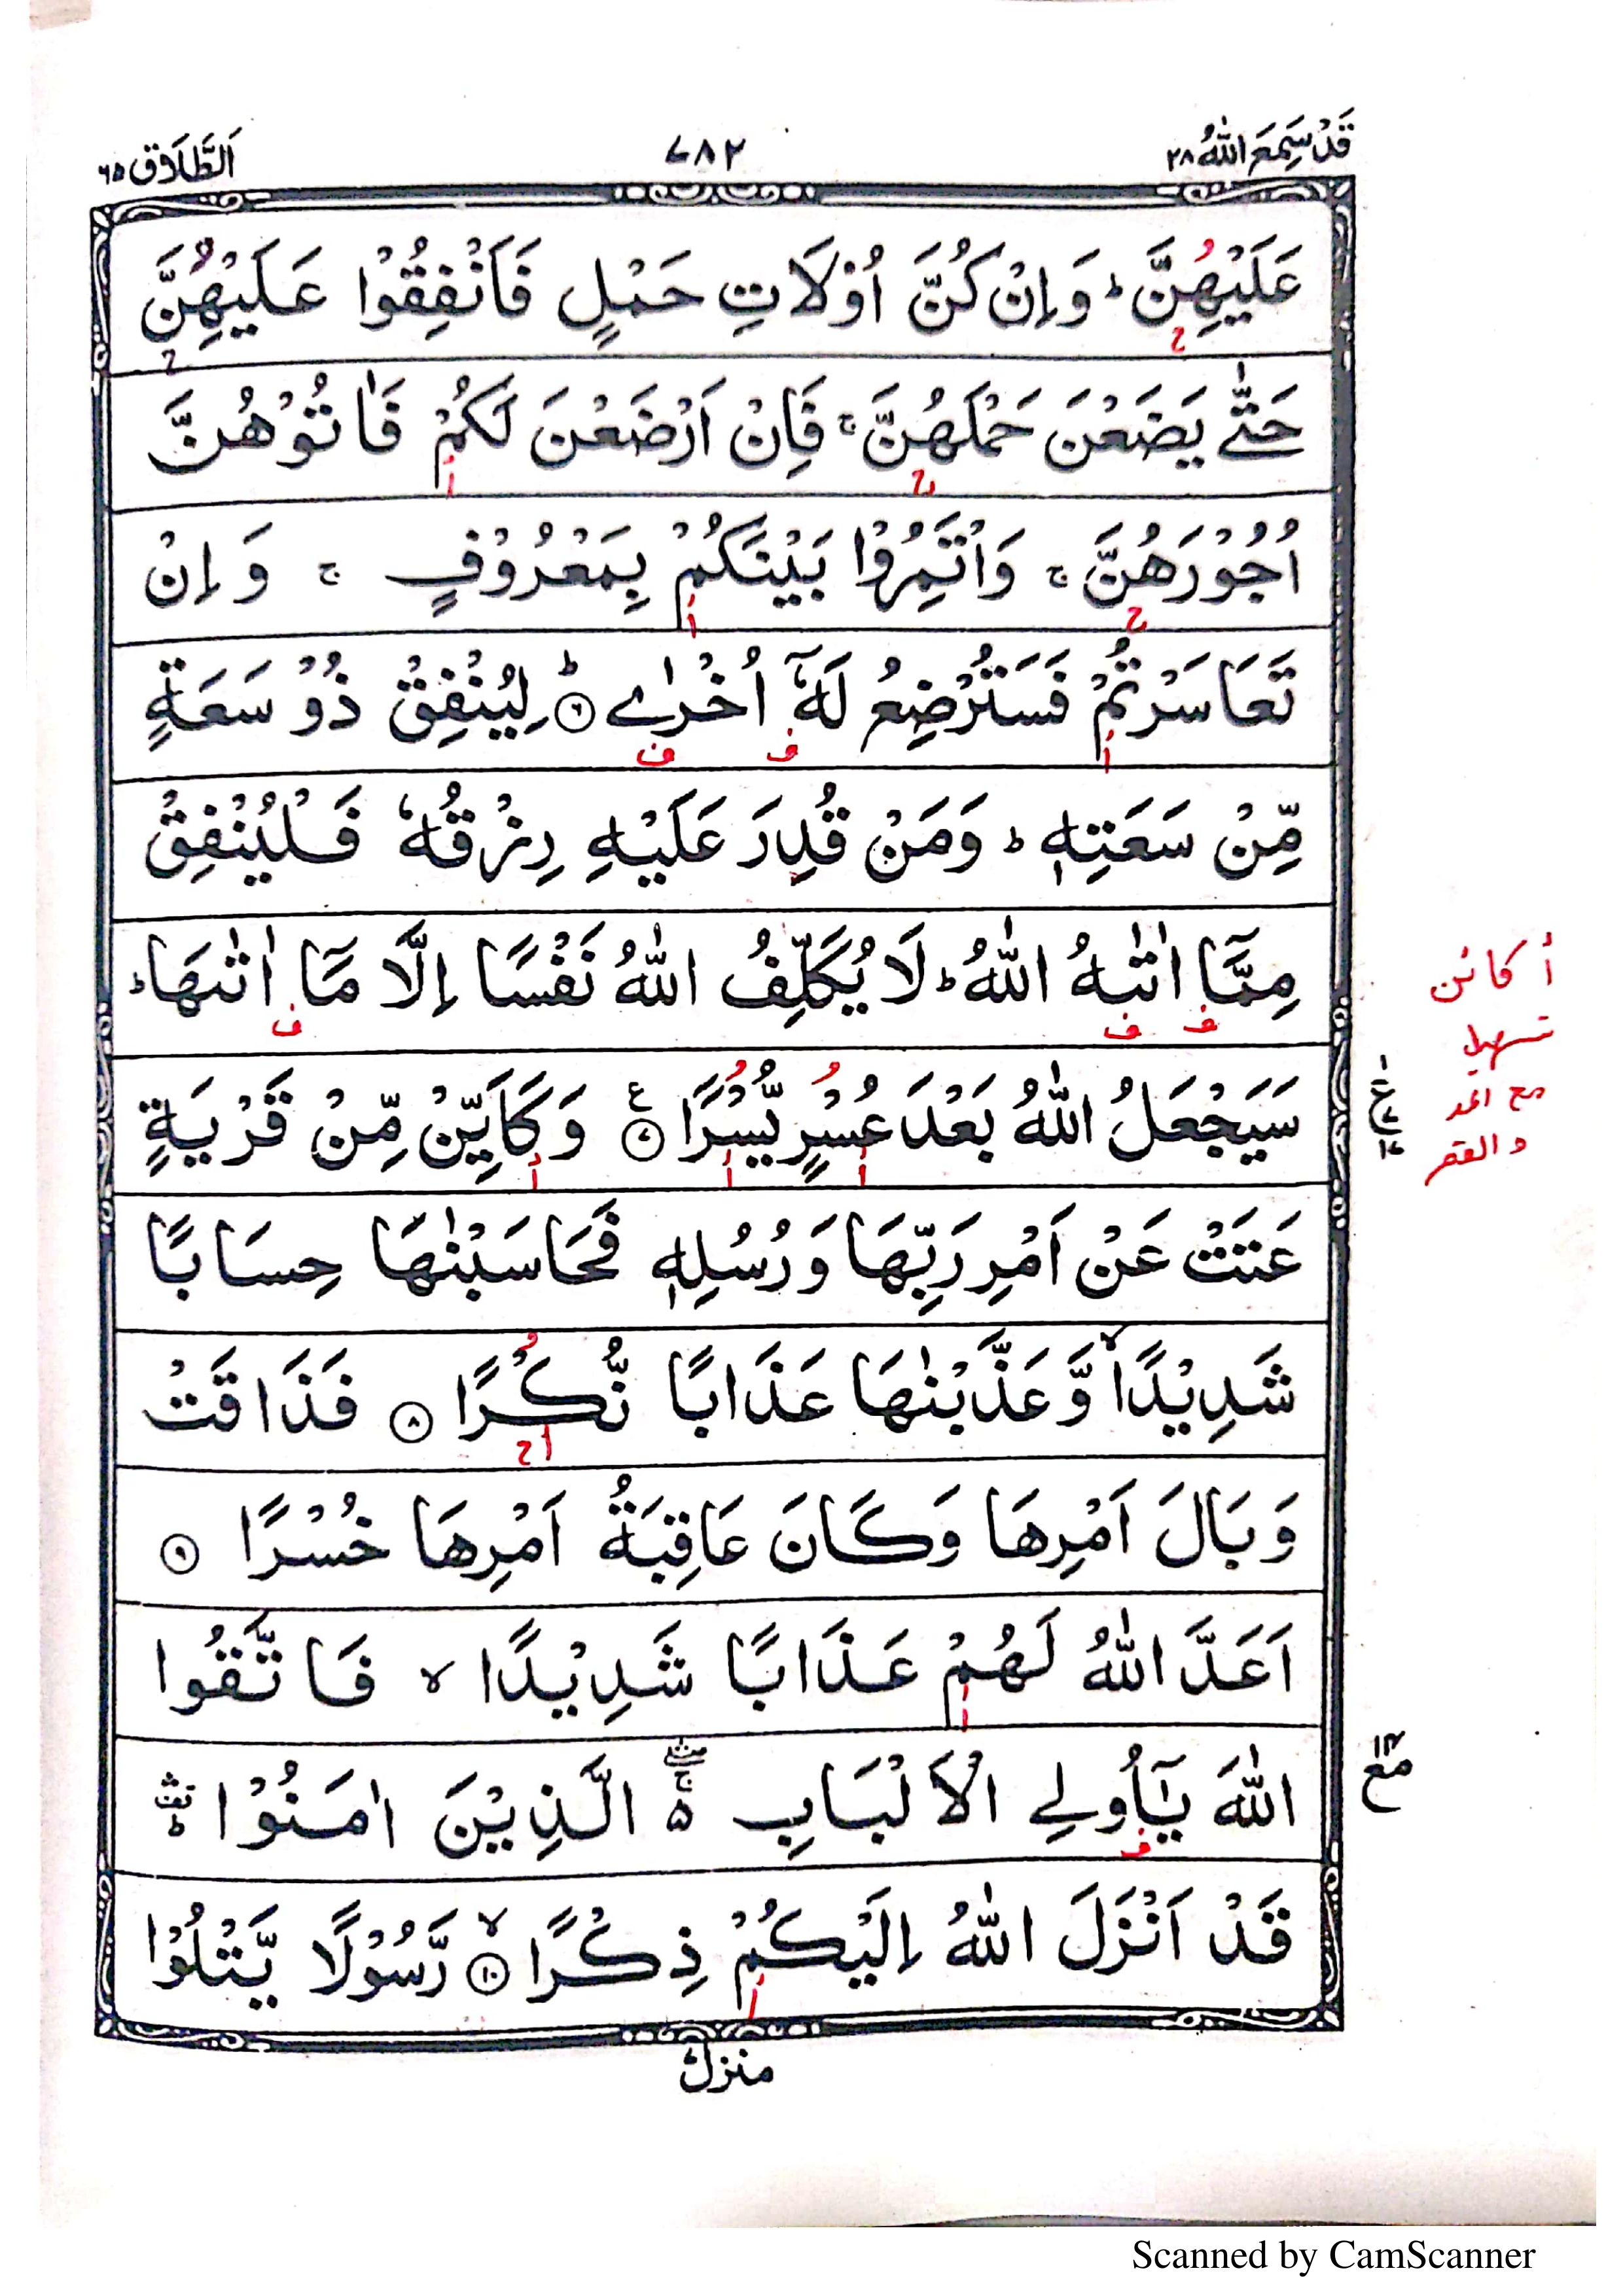 قَدْ سَمِعَ اللّٰهُ ٢٨
٧٨٢
اَلطَّلَاق ٦٥
عَلَيْهِنَّ ؕ وَاِنْ كُنَّ اُوْلَاتِ حَمْلٍ فَاَنْفِقُوْا عَلَيْهِنَّ
حَتّٰى يَضَعْنَ حَمْلَهُنَّ ۚ فَاِنْ اَرْضَعْنَ لَكُمْ فَاٰتُوْهُنَّ
اُجُوْرَهُنَّ ۚ وَاْتَمِرُوْا بَيْنَكُمْ بِمَعْرُوْفٍ ۚ وَاِنْ
تَعَاسَرْتُمْ فَسَتُرْضِعُ لَهٗٓ اُخْرٰى ؕ ۝٦ لِيُنْفِقْ ذُوْ سَعَةٍ
مِّنْ سَعَتِهٖ ؕ وَمَنْ قُدِرَ عَلَيْهِ رِزْقُهٗ فَلْيُنْفِقْ
مِمَّآ اٰتٰىهُ اللّٰهُ ؕ لَا يُكَلِّفُ اللّٰهُ نَفْسًا اِلَّا مَآ اٰتٰىهَا ؕ
أ كائن
تسهيل
مع المد
والقصر
سَيَجْعَلُ اللّٰهُ بَعْدَ عُسْرٍ يُّسْرًا ۝٧ ع وَكَاَيِّنْ مِّنْ قَرْيَةٍ
عَتَتْ عَنْ اَمْرِ رَبِّهَا وَرُسُلِهٖ فَحَاسَبْنٰهَا حِسَابًا
شَدِيْدًا ۙ وَّعَذَّبْنٰهَا عَذَابًا نُّكْرًا ۝٨ فَذَاقَتْ
وَبَالَ اَمْرِهَا وَكَانَ عَاقِبَةُ اَمْرِهَا خُسْرًا ۝٩
اَعَدَّ اللّٰهُ لَهُمْ عَذَابًا شَدِيْدًا ۙ فَاتَّقُوا
اللّٰهَ يٰٓاُولِى الْاَلْبَابِ ۛۚ ۵ الَّذِيْنَ اٰمَنُوْا ۛؕ
مع
قَدْ اَنْزَلَ اللّٰهُ اِلَيْكُمْ ذِكْرًا ۙ ۝١٠ رَّسُوْلًا يَّتْلُوْا
منزل
Scanned by CamScanner